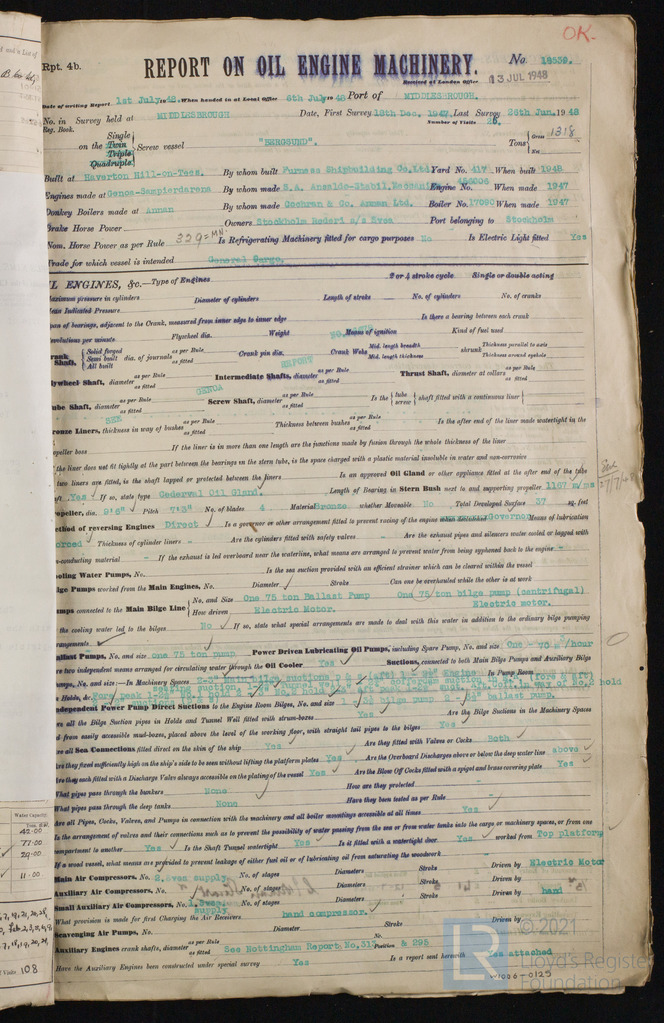 Rpt. 4b.
OK.
REPORT ON OIL ENGINE MACHINERY.
No. 18539.
Received at London Office 13 JUL 1948
Date of writing Report 1st July 1948. When handed in at Local Office 6th July 1948 Port of MIDDLESBROUGH.
No. in Survey held at MIDDLESBROUGH Date, First Survey 18th Dec. 1947 Last Survey 26th Jun. 1948
Reg. Book. Number of Visits
Single
on the Twin Screw vessel "BERGSUND". Tons Gross 1318
Triple
Quadruple Net
Built at Haverton Hill-on-Tees. By whom built Furness Shipbuilding Co. Ltd. Yard No. 417 When built 1948
Engines made at Genoa-Sampierdarena By whom made S.A. Ansaldo-Stabil. Engine No. When made 1947
Donkey Boilers made at Annan By whom made Cochran & Co. Annan Ltd. Boiler No. 17090 When made 1947
Brake Horse Power Owners Stockholm Rederi a/s Svea Port belonging to Stockholm
Nom. Horse Power as per Rule 329 = MN Is Refrigerating Machinery fitted for cargo purposes No Is Electric Light fitted Yes
Trade for which vessel is intended General Cargo.
OIL ENGINES, &c.—Type of Engines 2 or 4 stroke cycle Single or double acting
Maximum pressure in cylinders Diameter of cylinders Length of stroke No. of cylinders No. of cranks
Mean Indicated Pressure
Span of bearings, adjacent to the Crank, measured from inner edge to inner edge Is there a bearing between each crank
Revolutions per minute Flywheel dia. Weight Means of ignition Kind of fuel used
Crank Shaft, Solid forged Semi built All built dia. of journals as per Rule as fitted Crank pin dia. Crank Webs Mid. length breadth Mid. length thickness shrunk Thickness parallel to axis Thickness around eyehole
REPORT
Flywheel Shaft, diameter as per Rule as fitted Intermediate Shafts, diameter as per Rule as fitted Thrust Shaft, diameter at collars as per Rule as fitted
GENOA
Tube Shaft, diameter as per Rule as fitted Screw Shaft, diameter as per Rule as fitted Is the tube screw shaft fitted with a continuous liner
SEE
Bronze Liners, thickness in way of bushes as per Rule as fitted Thickness between bushes as per Rule as fitted Is the after end of the liner made watertight in the
propeller boss If the liner is in more than one length are the junctions made by fusion through the whole thickness of the liner
If the liner does not fit tightly at the part between the bearings on the stern tube, is the space charged with a plastic material insoluble in water and non-corrosive
If two liners are fitted, is the shaft lapped or protected between the liners Is an approved Oil Gland or other appliance fitted at the after end of the tube
shaft Yes If so, state type Cederval Oil Gland. Length of Bearing in Stern Bush next to and supporting propeller 1167 m/ms
Propeller, dia. 9'6" Pitch 7'3" No. of blades 4 Material Bronze whether Moveable No Total Developed Surface 37 sq. feet
Method of reversing Engines Direct Is a governor or other arrangement fitted to prevent racing of the engine when declutched Governor Means of lubrication
forced Thickness of cylinder liners - Are the cylinders fitted with safety valves - Are the exhaust pipes and silencers water cooled or lagged with
non-conducting material - If the exhaust is led overboard near the waterline, what means are arranged to prevent water from being syphoned back to the engine -
Cooling Water Pumps, No. Is the sea suction provided with an efficient strainer which can be cleared within the vessel
Bilge Pumps worked from the Main Engines, No. Diameter Stroke Can one be overhauled while the other is at work
Pumps connected to the Main Bilge Line No. and Size One 75 ton Ballast Pump One 75/ton bilge pump (centrifugal)
How driven Electric Motor. Electric motor.
Is the cooling water led to the bilges No If so, state what special arrangements are made to deal with this water in addition to the ordinary bilge pumping
arrangements
Ballast Pumps, No. and size One 75 ton pump Power Driven Lubricating Oil Pumps, including Spare Pump, No. and size One
Are two independent means arranged for circulating water through the Oil Cooler Yes Suctions, connected to both Main Bilge Pumps and Auxiliary Bilge
Pumps, No. and size:—In Machinery Spaces In Pump Room
In Holds, &c.
Independent Power Pump Direct Suctions to the Engine Room Bilges, No. and size
Are all the Bilge Suction pipes in Holds and Tunnel Well fitted with strum-boxes Yes Are the Bilge Suctions in the Machinery Spaces
led from easily accessible mud-boxes, placed above the level of the working floor, with straight tail pipes to the bilges Yes
Are all Sea Connections fitted direct on the skin of the ship Yes Are they fitted with Valves or Cocks Both
Are they fixed sufficiently high on the ship's side to be seen without lifting the platform plates Yes Are the Overboard Discharges above or below the deep water line above
Are they each fitted with a Discharge Valve always accessible on the plating of the vessel Yes Are the Blow Off Cocks fitted with a spigot and brass covering plate Yes
What pipes pass through the bunkers None How are they protected
What pipes pass through the deep tanks None Have they been tested as per Rule
Are all Pipes, Cocks, Valves, and Pumps in connection with the machinery and all boiler mountings accessible at all times Yes
Is the arrangement of valves and their connections such as to prevent the possibility of water passing from the sea or from water tanks into the cargo or machinery spaces, or from one
compartment to another Yes Is the Shaft Tunnel watertight Yes Is it fitted with a watertight door Yes worked from Top platform
If a wood vessel, what means are provided to prevent leakage of either fuel oil or of lubricating oil from saturating the woodwork
Main Air Compressors, No. No. of stages Diameters Stroke Driven by Electric Motor
Auxiliary Air Compressors, No. No. of stages Diameters Stroke Driven by
Small Auxiliary Air Compressors, No. No. of stages Diameters Stroke Driven by hand
What provision is made for first Charging the Air Receivers hand compressor.
Scavenging Air Pumps, No. Diameter Stroke Driven by
Auxiliary Engines crank shafts, diameter as per Rule as fitted See Nottingham Report No. 315 & 295 No. Position
Have the Auxiliary Engines been constructed under special survey Yes Is a report sent herewith Yes attached
Water Capacity.
42.00
77.00
29.00
11.00
of Visits 108
LR
© 2021
Lloyd's Register
Foundation
-0125